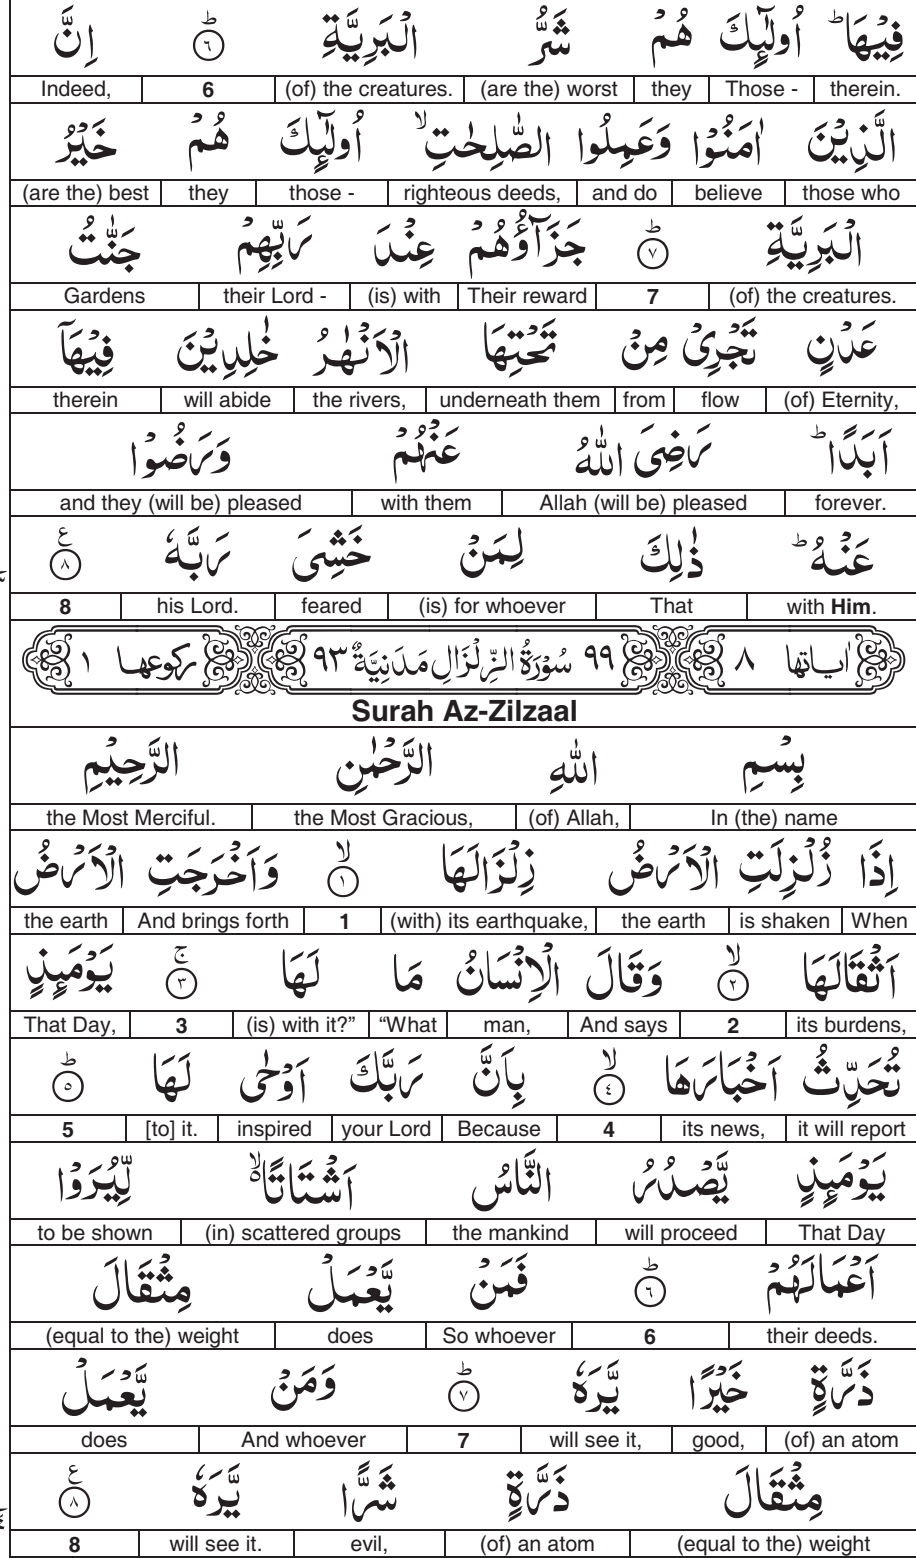 فِيْهَا ؕ اُولٰٓئِكَ هُمْ شَرُّ الْبَرِيَّةِ ؕ ۶ اِنَّ
therein. Those - they (are the) worst (of) the creatures. 6 Indeed,
الَّذِيْنَ اٰمَنُوْا وَعَمِلُوا الصّٰلِحٰتِ ۙ اُولٰٓئِكَ هُمْ خَيْرُ
those who believe and do righteous deeds, those - they (are the) best
الْبَرِيَّةِ ؕ ۷ جَزَآؤُهُمْ عِنْدَ رَبِّهِمْ جَنّٰتُ
(of) the creatures. 7 Their reward (is) with their Lord - Gardens
عَدْنٍ تَجْرِيْ مِنْ تَحْتِهَا الْاَنْهٰرُ خٰلِدِيْنَ فِيْهَاۤ
(of) Eternity, flow from underneath them the rivers, will abide therein
اَبَدًا ؕ رَضِيَ اللّٰهُ عَنْهُمْ وَرَضُوْا
forever. Allah (will be) pleased with them and they (will be) pleased
عَنْهُ ؕ ذٰلِكَ لِمَنْ خَشِيَ رَبَّهٗ ع ۸
with Him. That (is) for whoever feared his Lord. 8
اٰیاتها ۸ ۹۹ سُوْرَةُ الزِّلْزَالِ مَدَنِيَّةٌ ۹۳ ركوعها ۱
Surah Az-Zilzaal
بِسْمِ اللّٰهِ الرَّحْمٰنِ الرَّحِيْمِ
In (the) name (of) Allah, the Most Gracious, the Most Merciful.
اِذَا زُلْزِلَتِ الْاَرْضُ زِلْزَالَهَا ۙ ۱ وَاَخْرَجَتِ الْاَرْضُ
When is shaken the earth (with) its earthquake, 1 And brings forth the earth
اَثْقَالَهَا ۙ ۲ وَقَالَ الْاِنْسَانُ مَا لَهَا ۚ ۳ يَوْمَئِذٍ
its burdens, 2 And says man, “What (is) with it?” 3 That Day,
تُحَدِّثُ اَخْبَارَهَا ۙ ۴ بِاَنَّ رَبَّكَ اَوْحٰى لَهَا ؕ ۵
it will report its news, 4 Because your Lord inspired [to] it. 5
يَوْمَئِذٍ يَّصْدُرُ النَّاسُ اَشْتَاتًا ۙ لِّيُرَوْا
That Day will proceed the mankind (in) scattered groups to be shown
اَعْمَالَهُمْ ؕ ۶ فَمَنْ يَّعْمَلْ مِثْقَالَ
their deeds. 6 So whoever does (equal to the) weight
ذَرَّةٍ خَيْرًا يَّرَهٗ ؕ ۷ وَمَنْ يَّعْمَلْ
(of) an atom good, will see it, 7 And whoever does
مِثْقَالَ ذَرَّةٍ شَرًّا يَّرَهٗ ع ۸
(equal to the) weight (of) an atom evil, will see it. 8